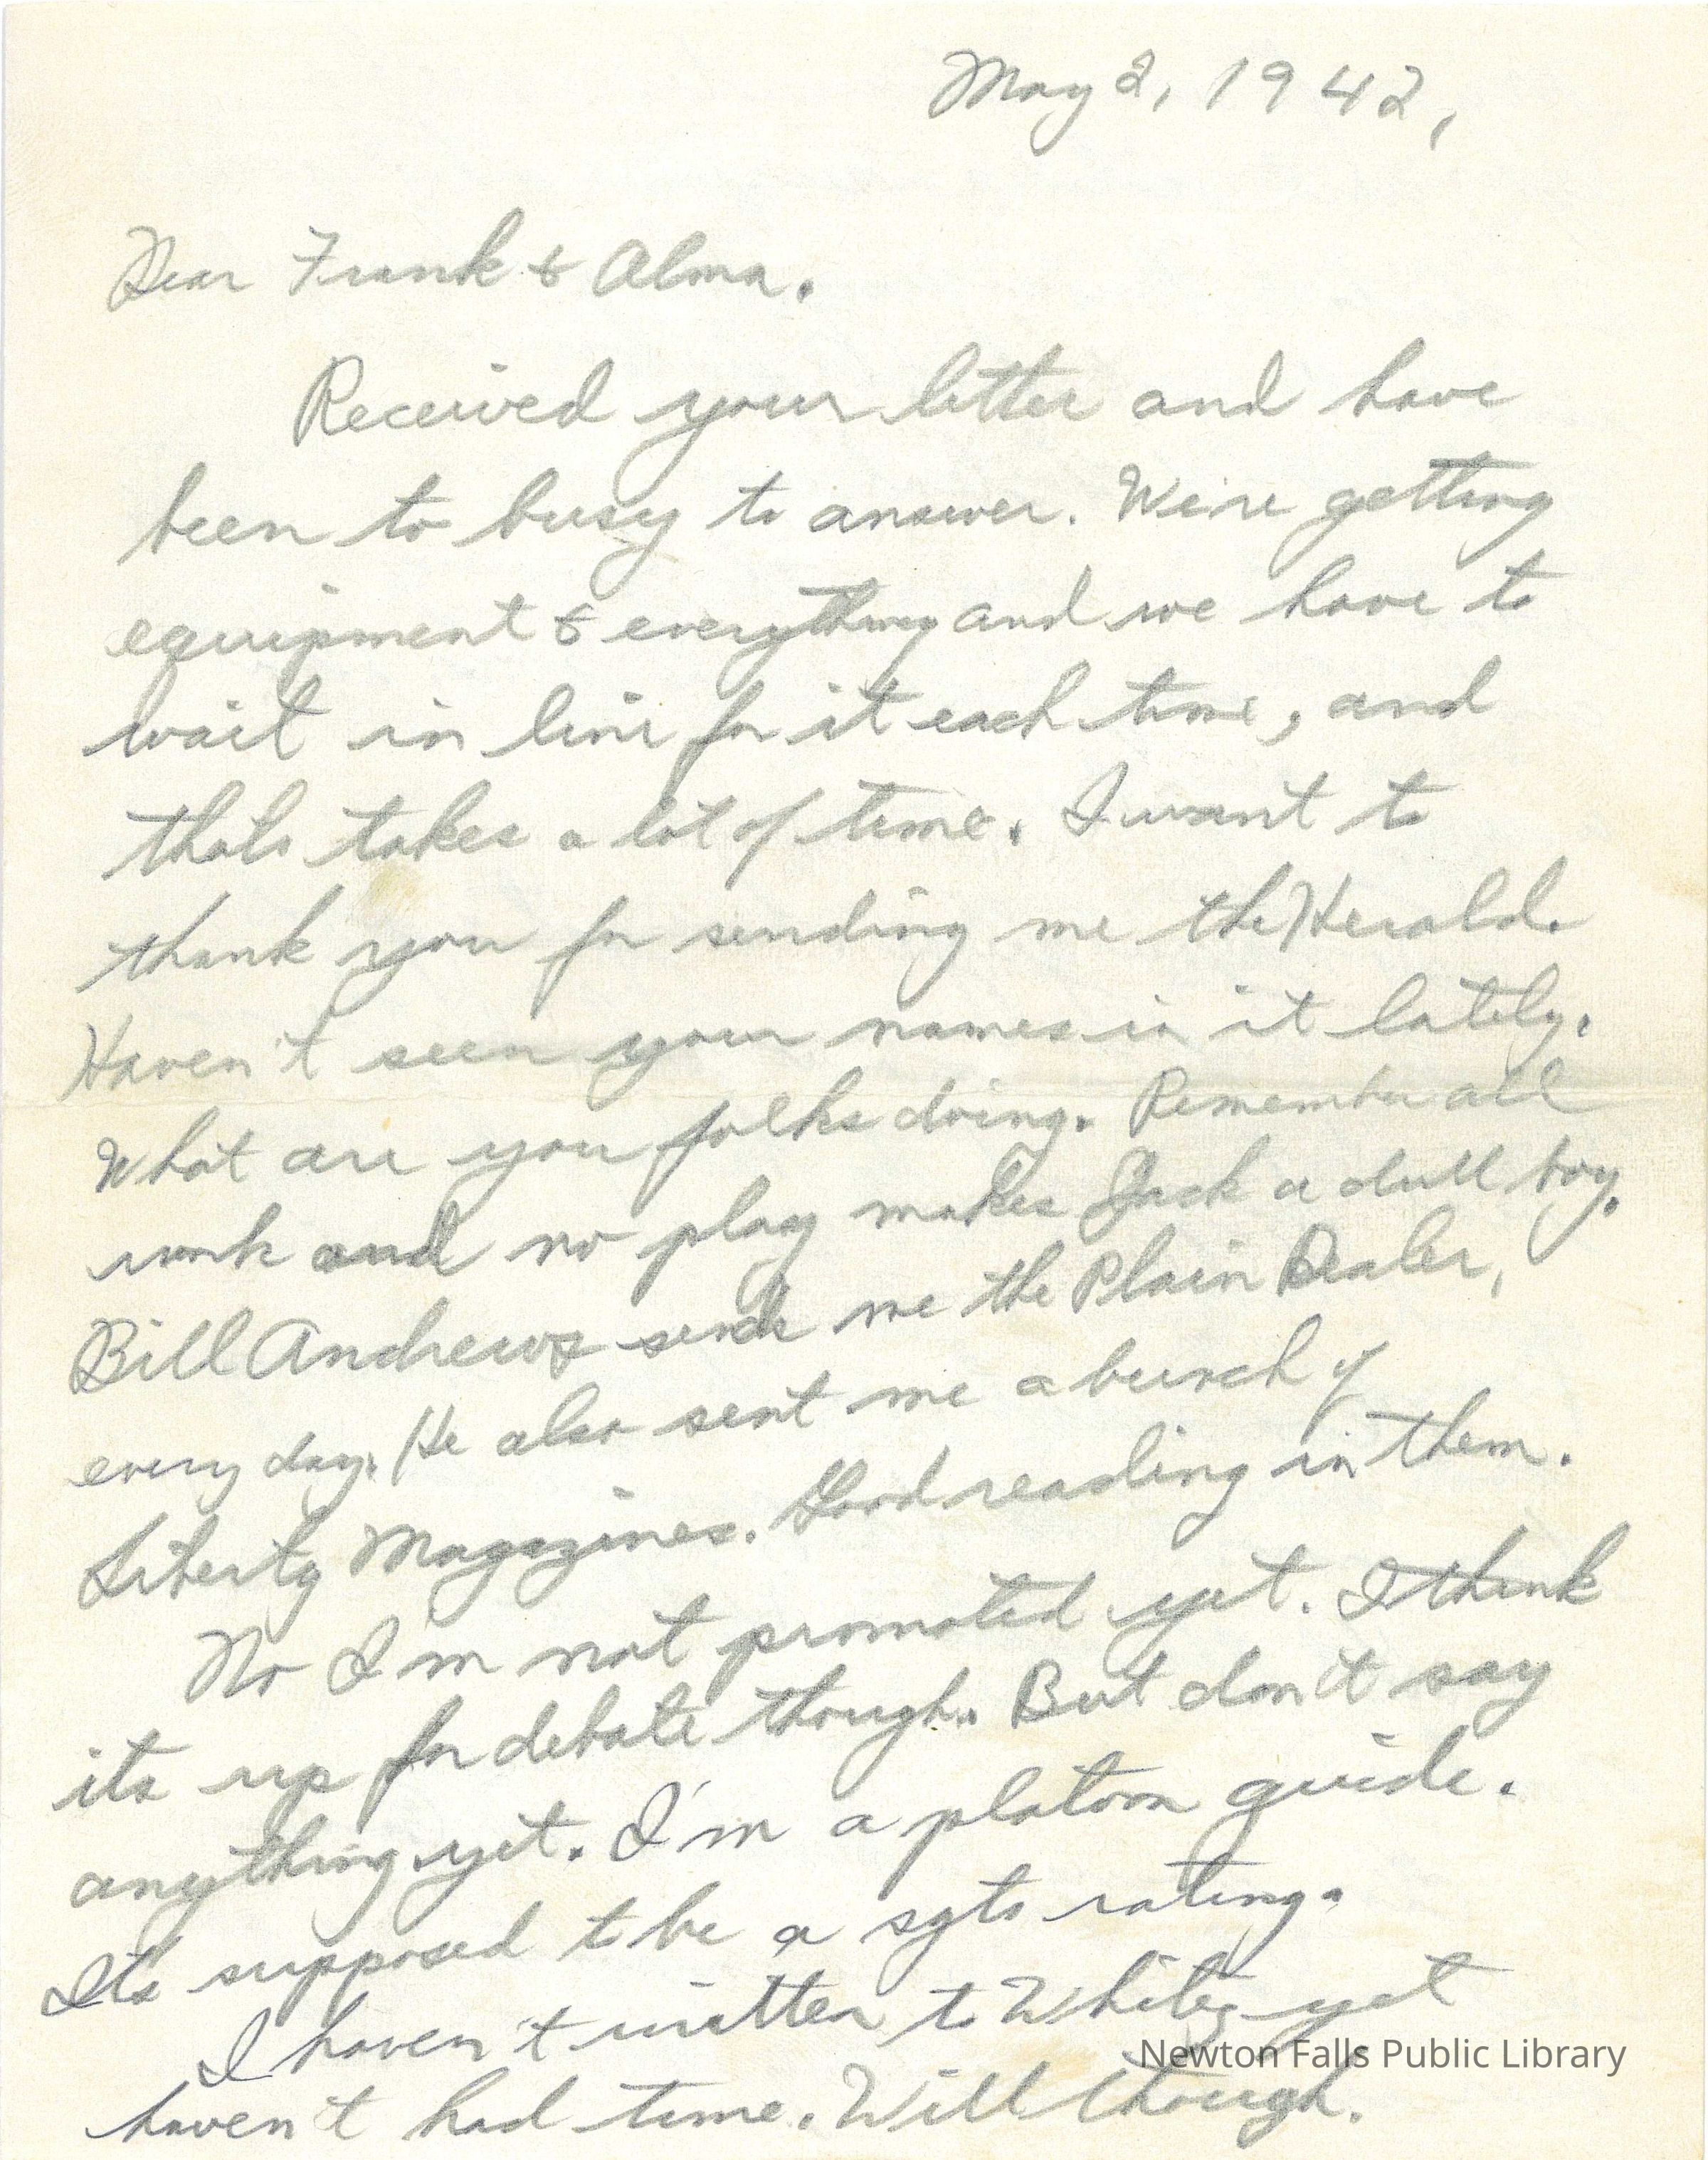 May 2, 1942,
Dear Frank & Alma.
Received your letter and have
been to busy to answer. We're getting
equipment & everything and we have to
wait in line for it each time, and
thats takes a lot of time. I want to
thank you for sending me the Herald.
Haven't seen your names in it lately.
What are you folks doing. Remember all
work and no play makes Jack a dull boy.
Bill Andrews sends me the Plain Dealer,
every day. He also sent me a bunch of
Liberty Magazines. Good reading in them.
No I'm not promoted yet. I think
its up for debate though. But don't say
anything yet. I'm a platoon guide.
Its supposed to be a sgts rating.
I haven't written to Whitey yet
haven't had time. Will though.
Newton Falls Public Library